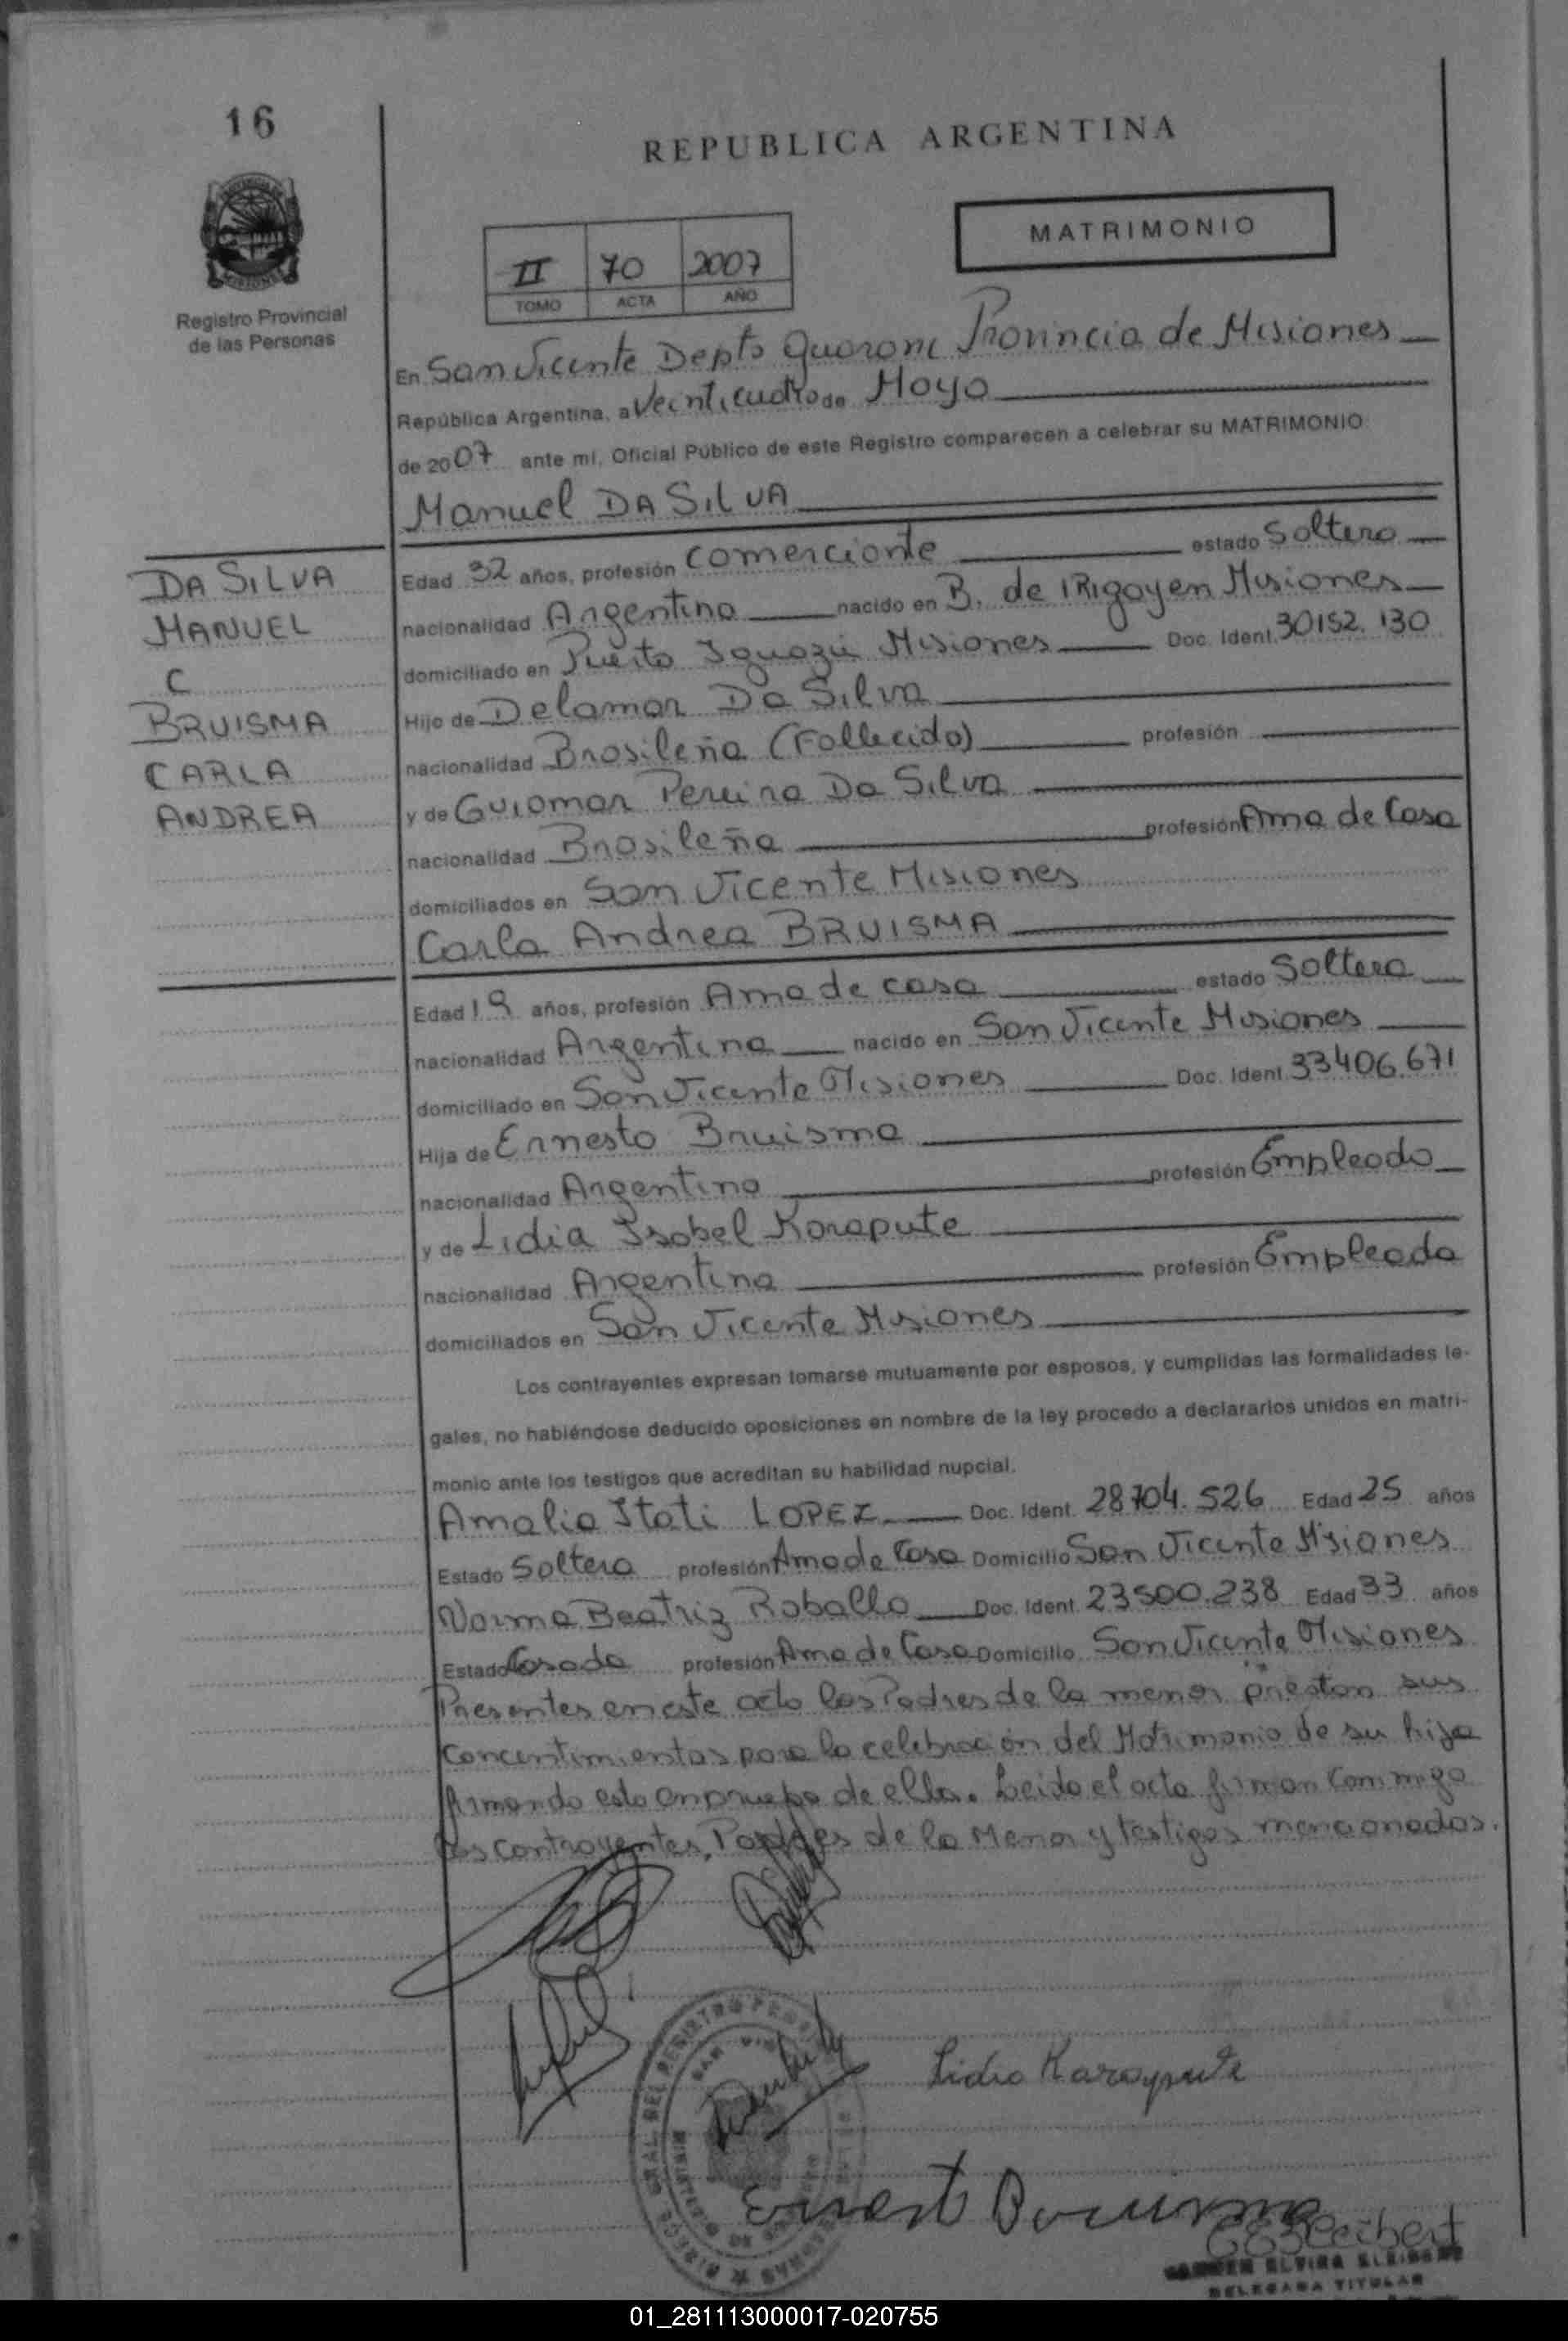 16
REPUBLICA ARGENTINA
MATRIMONIO
Registro Provincial
de las Personas
II 70 2007
TOMO ACTA AÑO
En San Vicente Depto Guarani Provincia de Misiones
República Argentina, a Veinticuatro de Mayo
de 2007 ante mí, Oficial Público de este Registro comparecen a celebrar su MATRIMONIO:
Manuel DA SILVA
DA SILVA
MANUEL
C
BRUISMA
CARLA
ANDREA
Edad 32 años, profesión comerciante estado Soltero
nacionalidad Argentina nacido en B. de IRigoyen Misiones
domiciliado en Puerto Iguazú Misiones Doc. Ident. 30152.130
Hijo de Delamar Da Silva
nacionalidad Brasileña (Fallecido) profesión
y de Guiomar Pereira Da Silva
nacionalidad Brasileña profesión Ama de Casa
domiciliados en San Vicente Misiones
Carla Andrea BRUISMA
Edad 19 años, profesión Ama de casa estado Soltera
nacionalidad Argentina nacido en San Vicente Misiones
domiciliado en San Vicente Misiones Doc. Ident. 33406.671
Hija de Ernesto Bruisma
nacionalidad Argentino profesión Empleado
y de Lidia Isabel Karapute
nacionalidad Argentina profesión Empleada
domiciliados en San Vicente Misiones
Los contrayentes expresan tomarse mutuamente por esposos, y cumplidas las formalidades le-
gales, no habiéndose deducido oposiciones en nombre de la ley procedo a declararlos unidos en matri-
monio ante los testigos que acreditan su habilidad nupcial.
Amalia Itati LOPEZ Doc. Ident. 28704.526 Edad 25 años
Estado Soltera profesión Ama de Casa Domicilio San Vicente Misiones
Norma Beatriz Roballo Doc. Ident. 23500.238 Edad 33 años
Estado Casada profesión Ama de Casa Domicilio San Vicente Misiones
Presentes en este acto los Padres de la menor prestan sus
concentimientos para la celebración del Matrimonio de su hija
firmando esta en prueba de ello. Leida el acta firman conmigo
los contrayentes, Padres de la Menor y testigos mencionados.
Lidia Karapute
Ernesto Bruisma
CARMEN ELVIRA
DELEGADA TITULAR
01_281113000017-020755